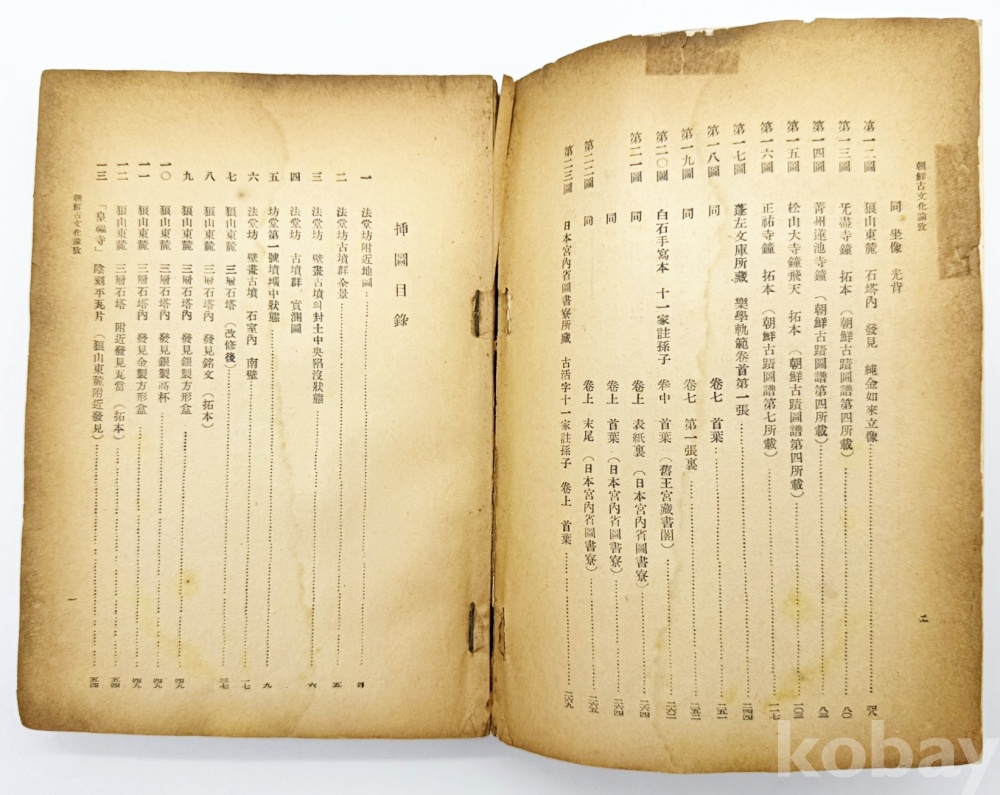 朝鮮古文化論攷
同 坐像 光背
第一二圖 狼山東麓 石塔內 發見 純金如來立像 四八
第一三圖 无盡寺鐘 拓本 (朝鮮古蹟圖譜第四所載) 八〇
第一四圖 菁州蓮池寺鐘 (朝鮮古蹟圖譜第四所載) 八三
第一五圖 松山大寺鐘飛天 拓本 (朝鮮古蹟圖譜第四所載)
第一六圖 正祐寺鐘 拓本 (朝鮮古蹟圖譜第七所載) 一一七
第一七圖 蓬左文庫所藏 樂學軌範卷首第一張 一四四
第一八圖 同 卷七 首葉 一五一
第一九圖 同 卷七 第一張裏 一五二
第二〇圖 白石手寫本 十一家註孫子 卷中 首葉 (舊王宮藏書閣)
第二一圖 同 卷上 表紙裏 (日本宮內省圖書寮) 二六四
同 卷上 首葉 (日本宮內省圖書寮) 二六四
第二二圖 同 卷上 末尾 (日本宮內省圖書寮) 二六五
第二三圖 日本宮內省圖書寮所藏 古活字十一家註孫子 卷上 首葉 二六九
插圖目錄
一 法堂坊附近地圖 四
二 法堂坊古墳群全景 五
三 法堂坊 壁畫古墳의封土中央陷沒狀態 六
四 法堂坊 古墳群 實測圖
五 坊堂第一號墳壙中狀態 九
六 法堂坊 壁畫古墳 石室內 南壁 一七
七 狼山東麓 三層石塔 (改修後) 三七
八 狼山東麓 三層石塔內 發見銘文 (拓本)
九 狼山東麓 三層石塔內 發見銀製方形盒 四九
一〇 狼山東麓 三層石塔內 發見銀製高杯 四九
一一 狼山東麓 三層石塔內 發見金製方形盒 四九
一二 狼山東麓 三層石塔 附近發見瓦當 (拓本) 五四
一三 「皇福寺」 陰刻平瓦片 (狼山東麓附近發見) 五四
朝鮮古文化論攷
一
kobay